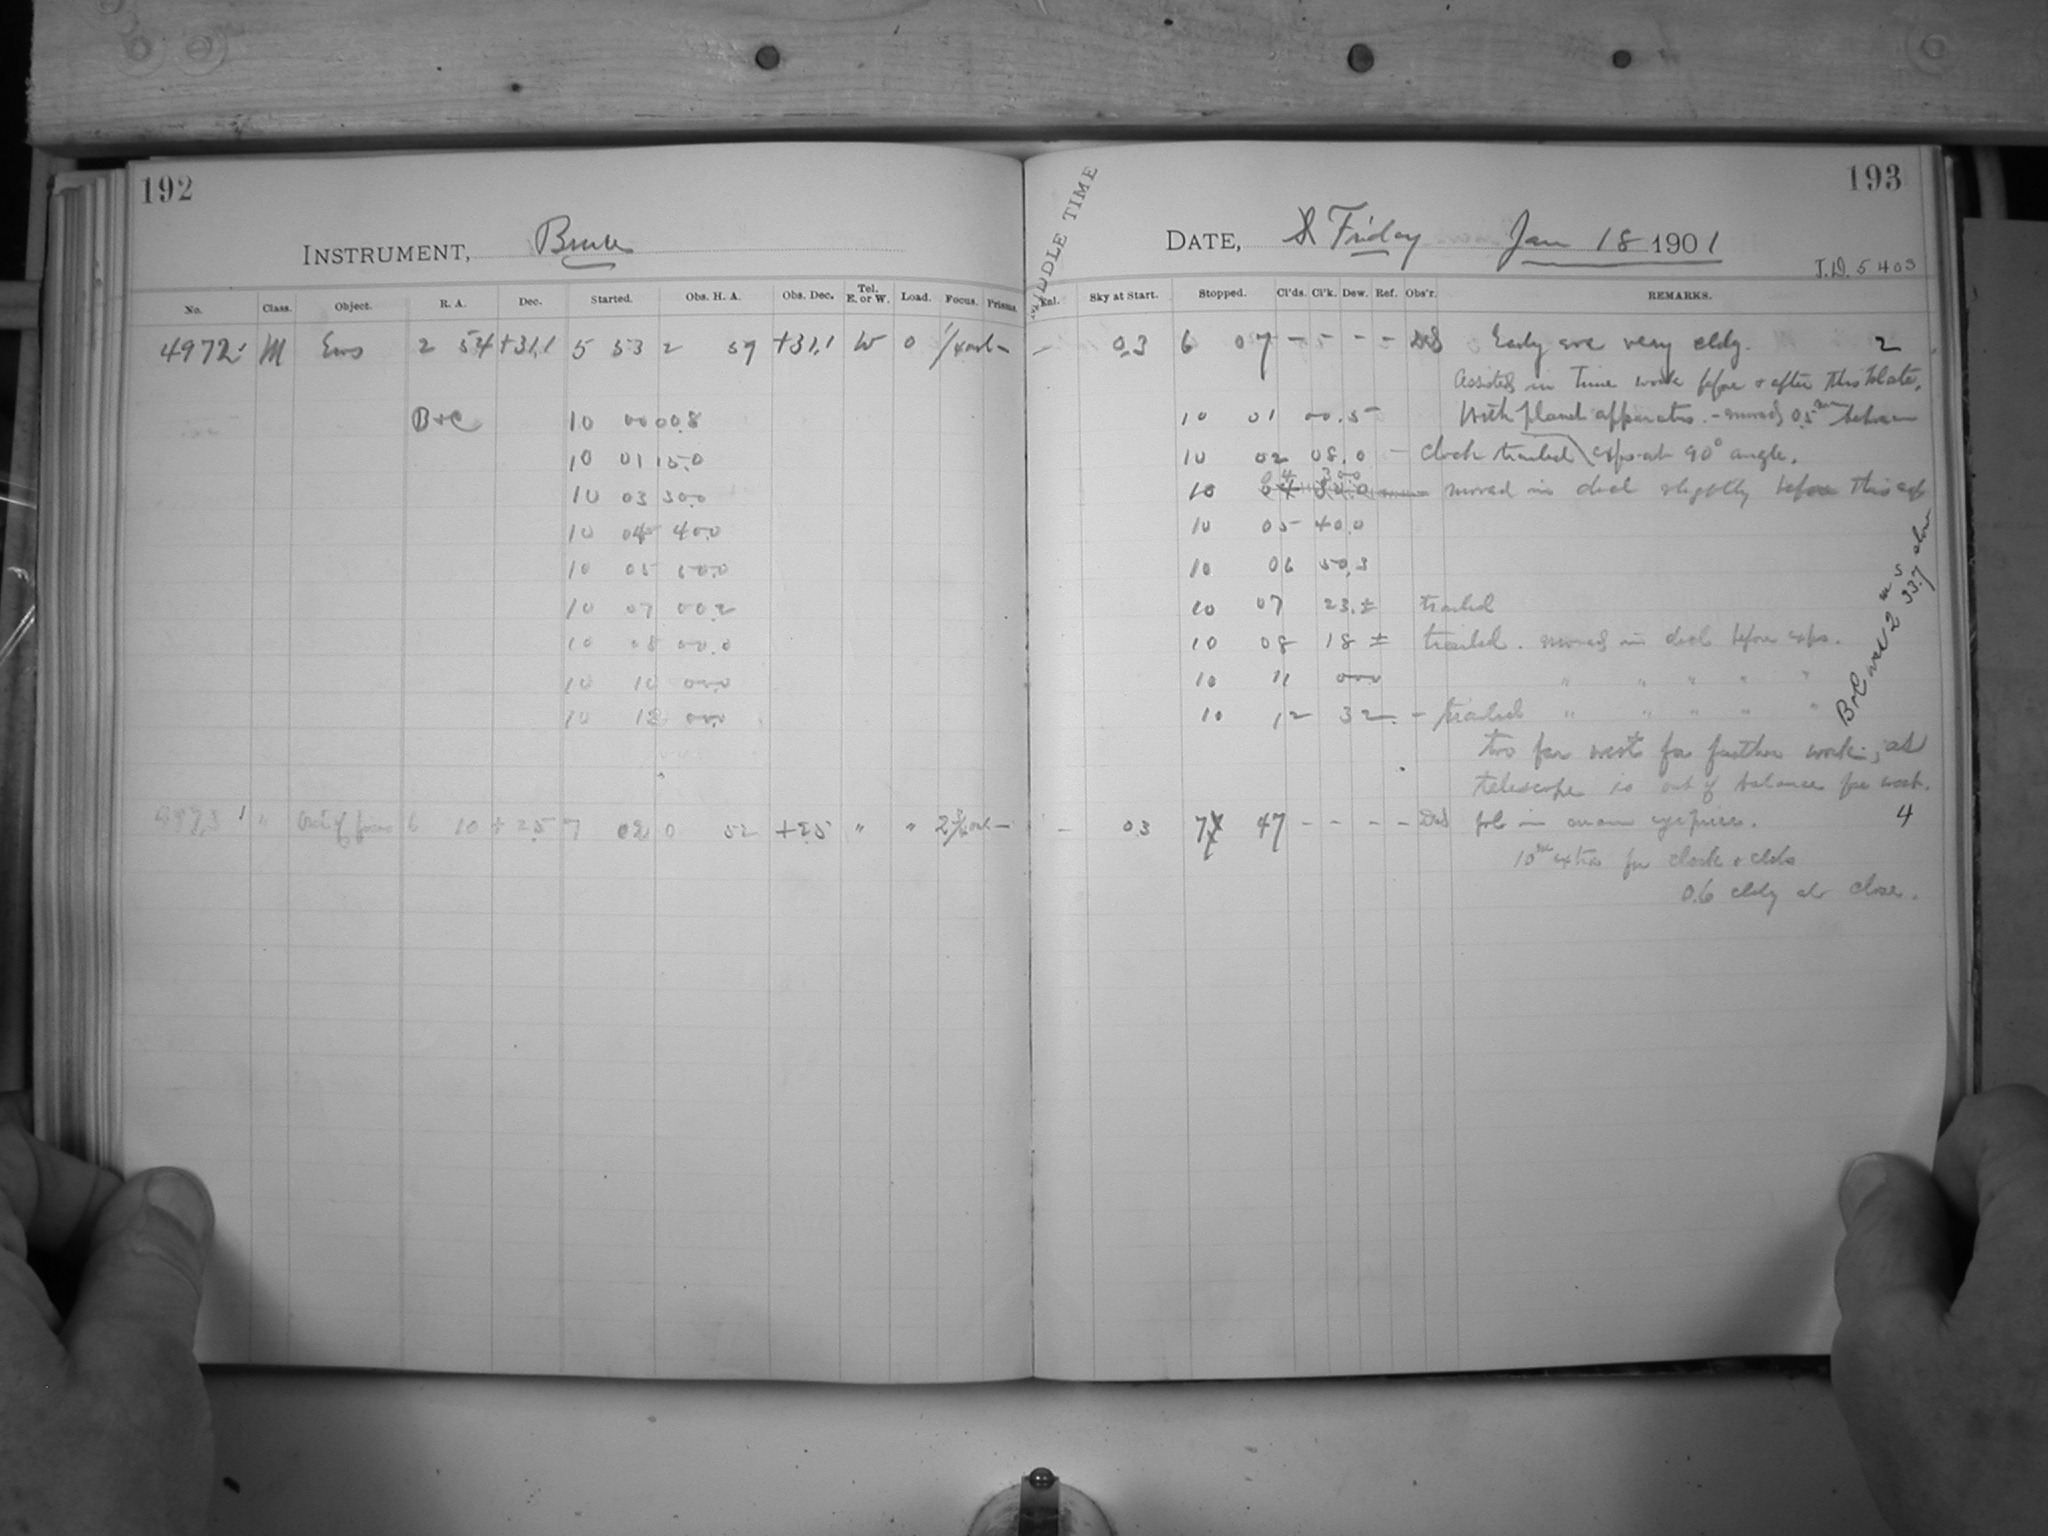 192
INSTRUMENT, Bruce
No. Class. Object. R. A. Dec. Started. Obs. H. A. Obs. Dec. Tel. E. or W. Load. Focus. Prisms.
4972 M Eros 2 54 +31.1 5 53 2 59 +31.1 W 0
B+C 10 00 00.8
10 01 15.0
10 03 30.0
10 04 40.0
10 05 50.0
10 07 00.2
10 08 00.0
10 10 00.0
10 12 00.0
4973 " Out of focus 6 10 +25 7 02 0 52 +25 " "
193
MIDDLE TIME
DATE, Friday Jan 18 1901
J.D. 5403
Enl. Sky at Start. Stopped. Cl'ds. Cl'k. Dew. Ref. Obs'r. REMARKS.
– 0.3 6 07 – – – – Early eve very cldy. 2
Assisted in time work before & after this plate.
10 01 00.5 With planet apparatus. – moved 0.5 between
10 02 08.0 – clock trailed exps. at 90° angle.
10 04 30.0 moved in decl slightly before this exp
10 05 40.0
10 06 50.3
10 07 23.± trailed
10 08 18 ± trailed. moved in decl before exps.
10 11 00.0 " " " " "
10 12 32. – trailed " " " " "
B+C was 2m 33.7s slow
too far west for further work, as
telescope is out of balance for west.
– 03 7 47 – – – – in main eyepiece. 4
10m extra for clock & clds
0.6 cldy at close.